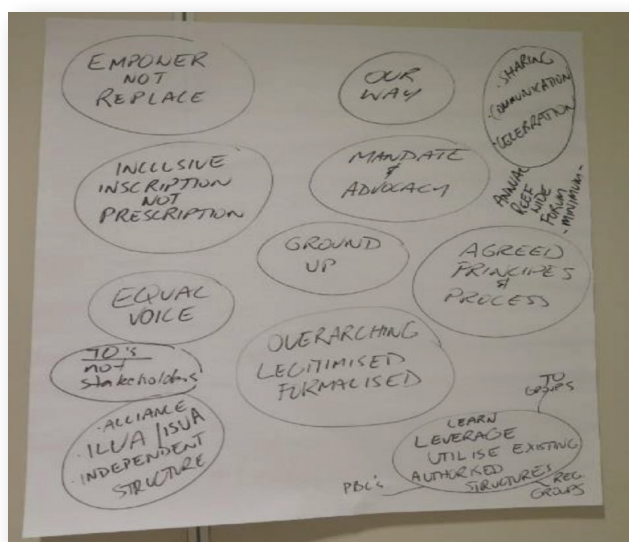 EMPOWER
NOT
REPLACE
OUR
WAY
· SHARING
· COMMUNICATION
· CELEBRATION
ANNUAL
REEF
WIDE
FORUM
- MINIMUM -
INCLUSIVE
INSCRIPTION
NOT
PRESCRIPTION
MANDATE
&
ADVOCACY
GROUND
UP
AGREED
PRINCIPES
&
PROCESS
EQUAL
VOICE
TO's
not
stakeholders
OVERARCHING
LEGITIMISED
FORMALISED
· ALLIANCE
· ILUA / ISUA
· INDEPENDENT
STRUCTURE
LEARN
LEVERAGE
UTILISE EXISTING
AUTHORISED
STRUCTURES
TO
GROUPS
PBC's
REG
GROUPS